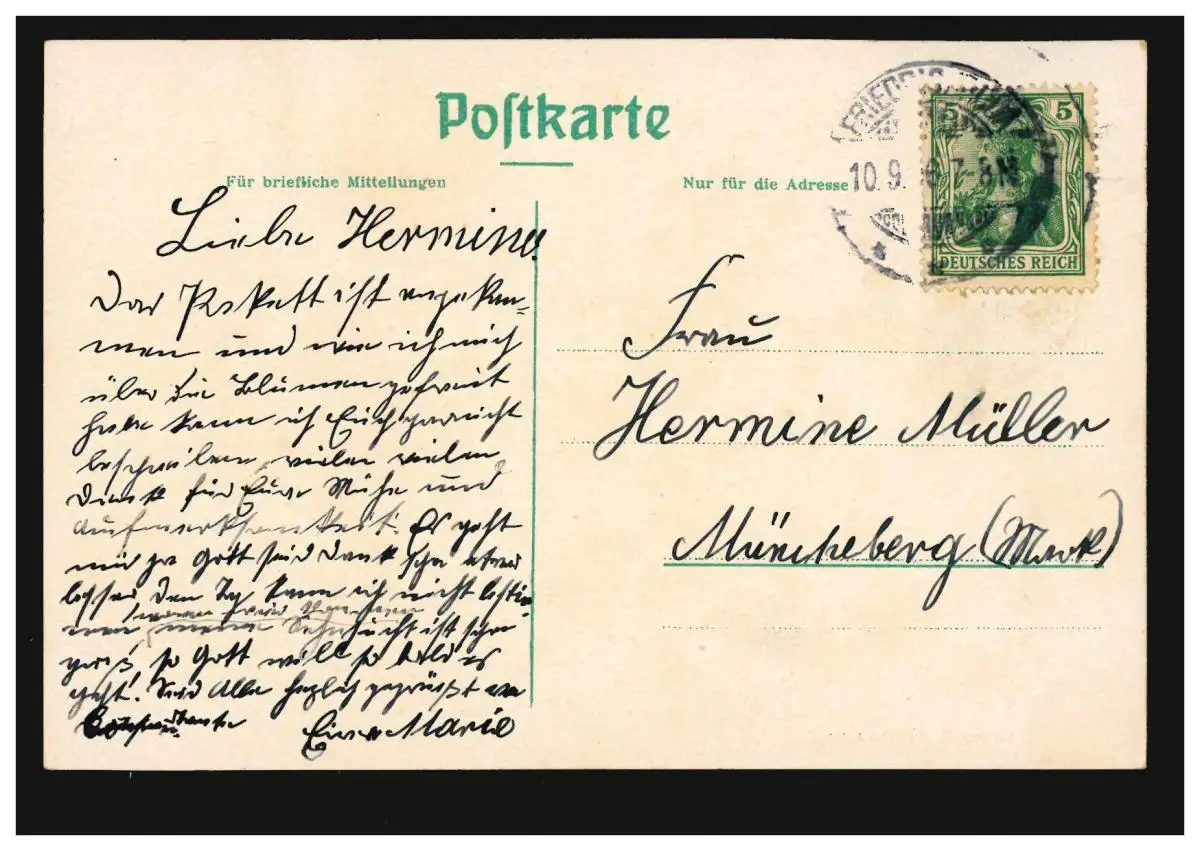 Postkarte
Für briefliche Mitteilungen
Nur für die Adresse
10.9. 7-8N
5 5
DEUTSCHES REICH
Liebe Hermine!
Das Paket ist angekom=
men und wie ich mich
über die Blumen gefreut
habe kann ich Euch gar nicht
beschreiben, vielen vielen
Dank für Eure Mühe und
Aufmerksamkeit. Es geht
mir ja Gott sei Dank schon etwas
besser den Tag kann ich nicht bestim=
men, wann
meine Sehnsucht ist schon
groß, so Gott will so bald es
geht. Seid Alle herzlich gegrüßt von
Eurer Marie
Frau
Hermine Müller
Müncheberg (Mark)